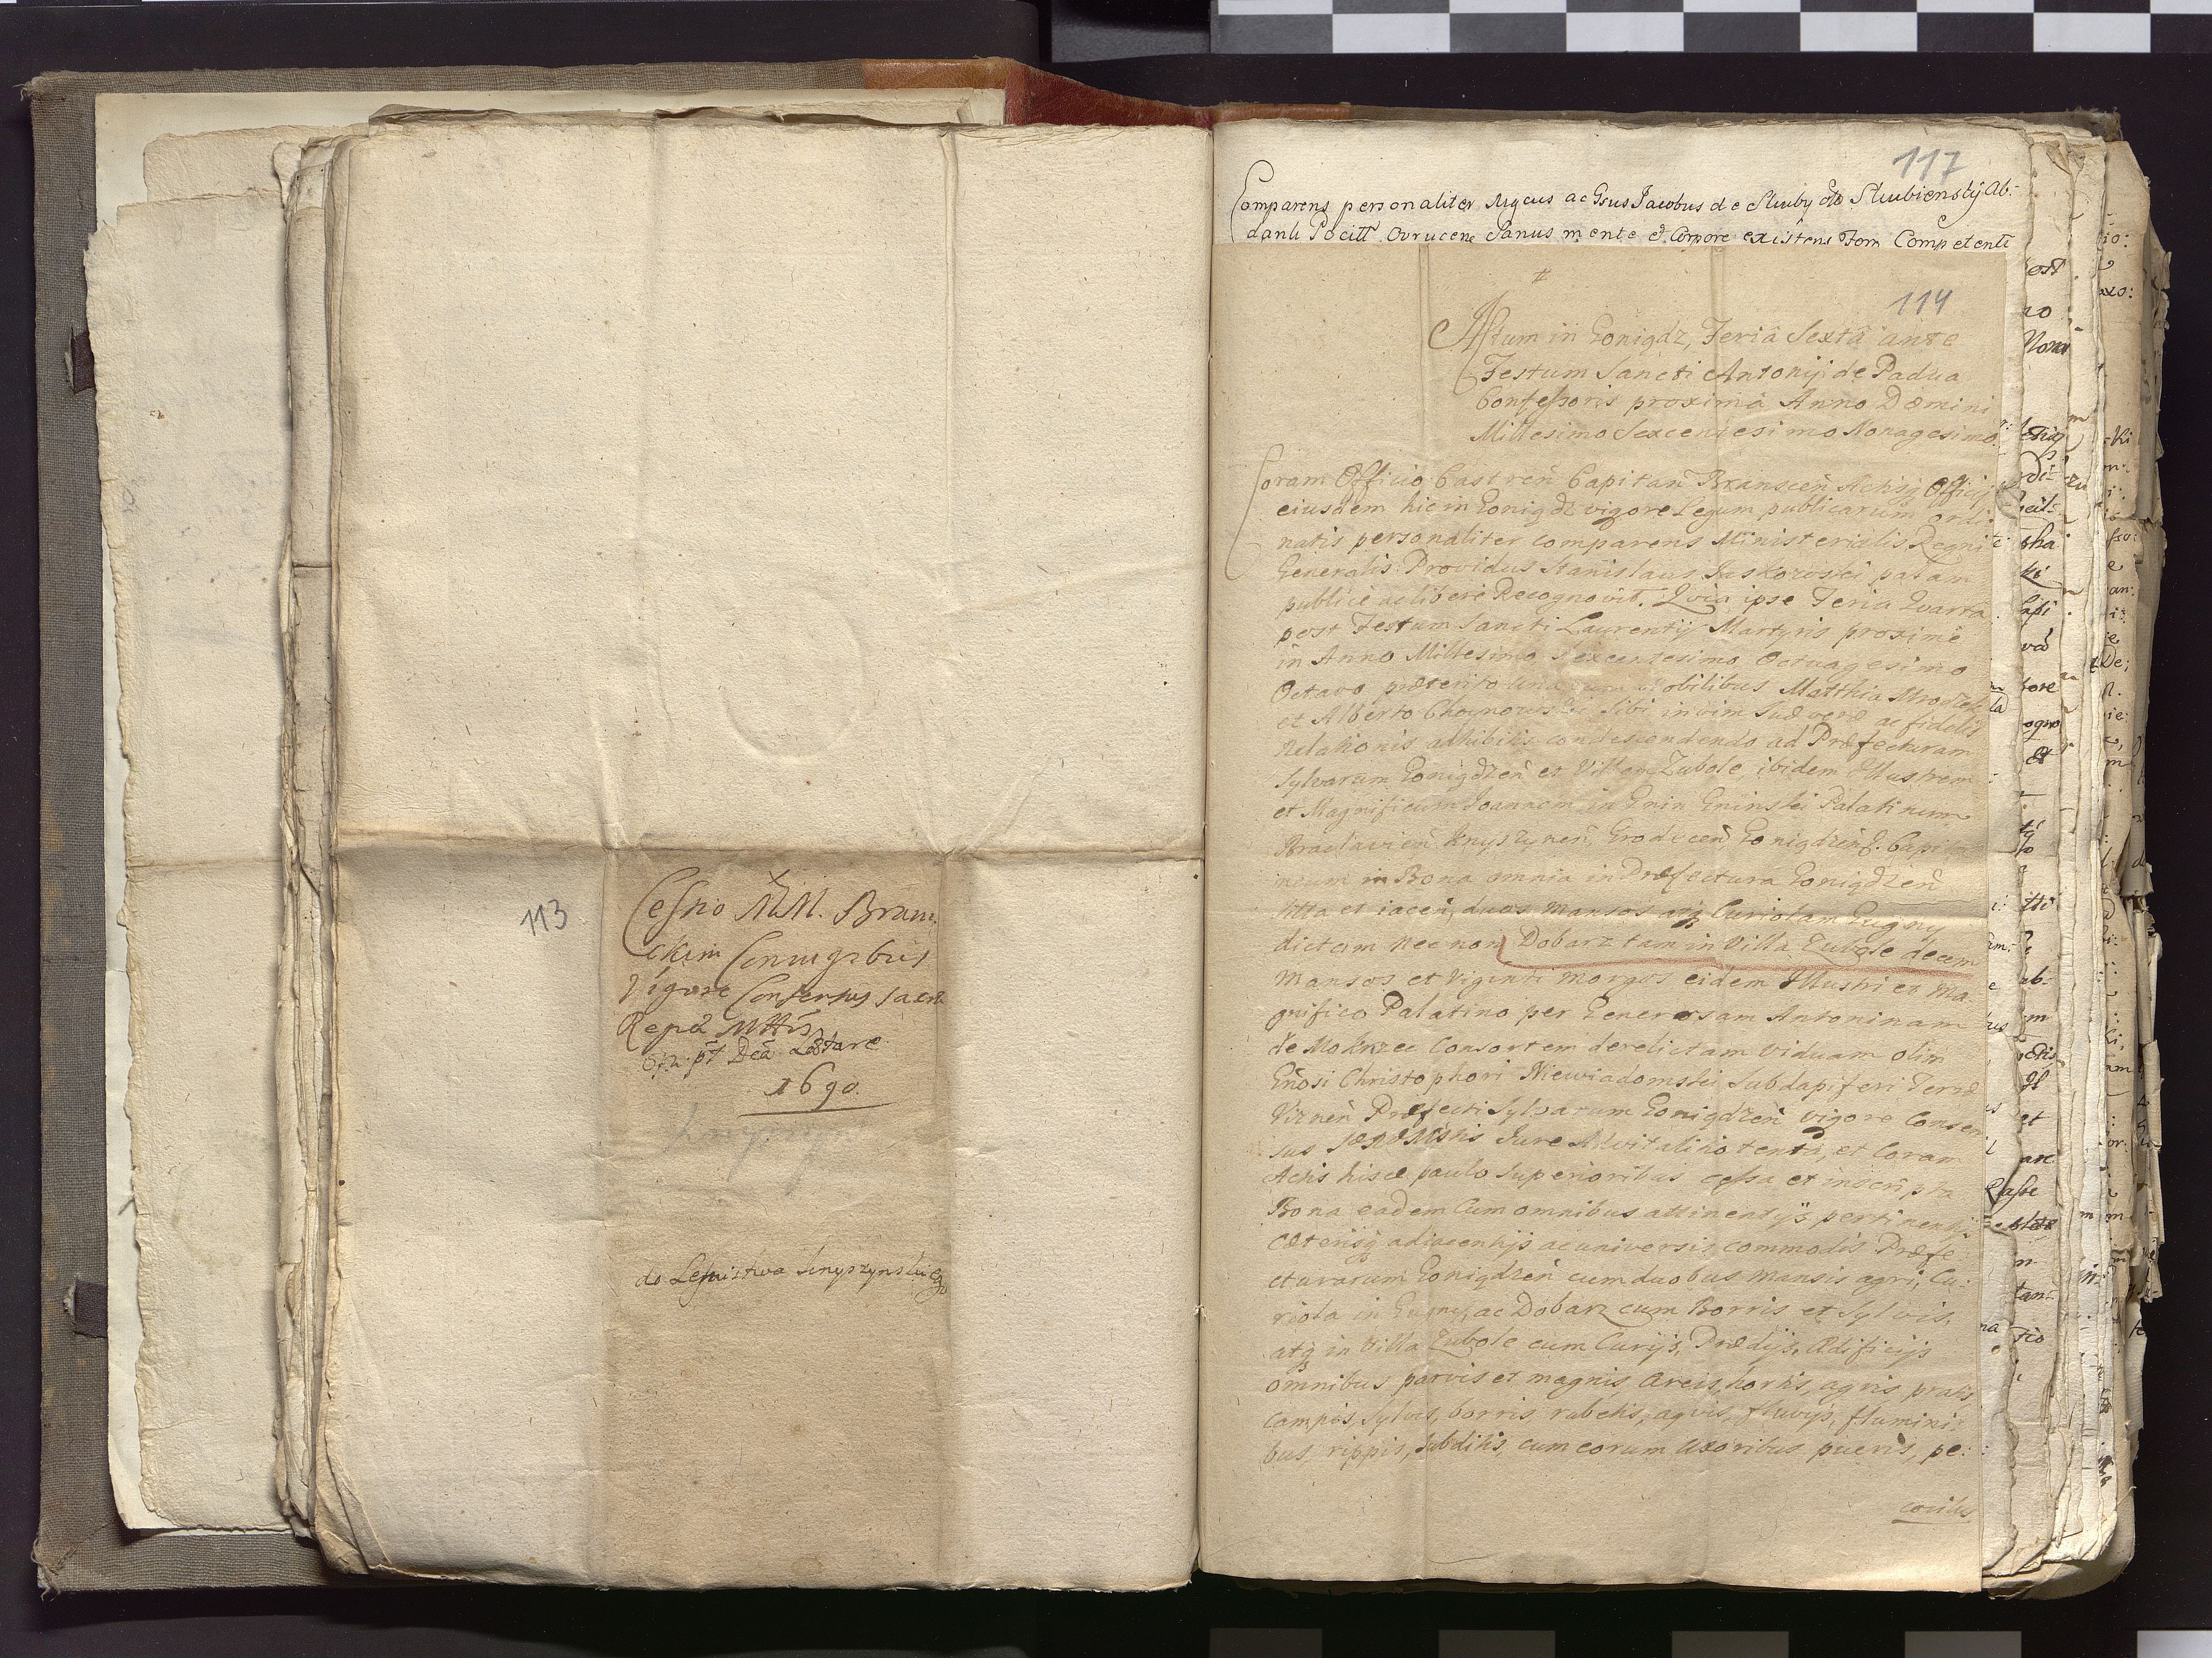 113
Cessio MM. Brani-
ckim Coniugibus
Vigore Consensus Sacrae
Regiae Mttis
1690.
do Lesnictwa Knyszynskiego
117
Comparens personaliter Mgcus ac Gsus Jacobus de Słuby Słubienskij Ab:
dank Pocill Ovrucen Sanus mente et Corpore existens Fori Competenti
114
Actum in Gonigdz, Feria Sexta ante
Festum Sancti Antonij de Padua
Confessoris proxima Anno Domini
Millesimo Sexcentesimo Nonagesimo
Coram Officio Castren Capitan Branscen Actisq Officij
eiusdem hic in Gonigdz vigore Legum publicarum ordi:
natis personaliter comparens Ministerialis Regni
Generalis Providus Stanislaus Jaskorowski palam
publice ac libere Recognovit. Quia ipse Feria Quarta
post Festum Sancti Laurentij Martyris proxime
in Anno Millesimo Sexcentesimo Octuagesimo
Octavo praeterito una cum Nobilibus Matthia Mrozek
et Alberto Choynowski sibi in vim suae verae ac fidelis
Relationis adhibitis condescendendo ad Praefecturam
Sylvarum Gonigdzen et Villam Zubole, ibidem Illustrem
et Magnificum Joannem in Gnin Gninski Palatinum
Braclavien Knyszynen Grodecen Gonigdzen Capi
neum in Bona omnia in Praefectura Gonigdzen
sitta et iacen, duos mansos atq Curiolam Gugny
dictam nec non Dobarz tam in Villa Zubole decem
Mansos et Viginti morgos eidem Illustri et Ma
gnifico Palatino per Generosam Antoninam
de Mokrzec Consortem derelictam viduam olim
Gnosi Christophori Niewiadomski Subdapiferi Terrae
Viznen Praefecti Sylvarum Gonigdzen vigore Consen
sus SRMttis Jure Advitalitio tenta, et Coram
Actis hisce paulo superioribus cessa et inscripta
Bona eadem Cum omnibus attinentijs pertinentijs
caeterisq adiacentijs ac universis commodis Praefe
cturarum Gonigdzen cum duobus mansis agri, Cu:
riola in Gugny, ac Dobarz cum Borris et Sylvis,
atq in Villa Zubole cum Curijs, Praedijs, Aedificijs
omnibus parvis et magnis, areis, hortis, agris pratis,
campis, sylvis, borris, rubetis, aqvis, fluvijs, flumini:
bus, rippis, subditis, cum eorum uxoribus pueris, pe:
coribus